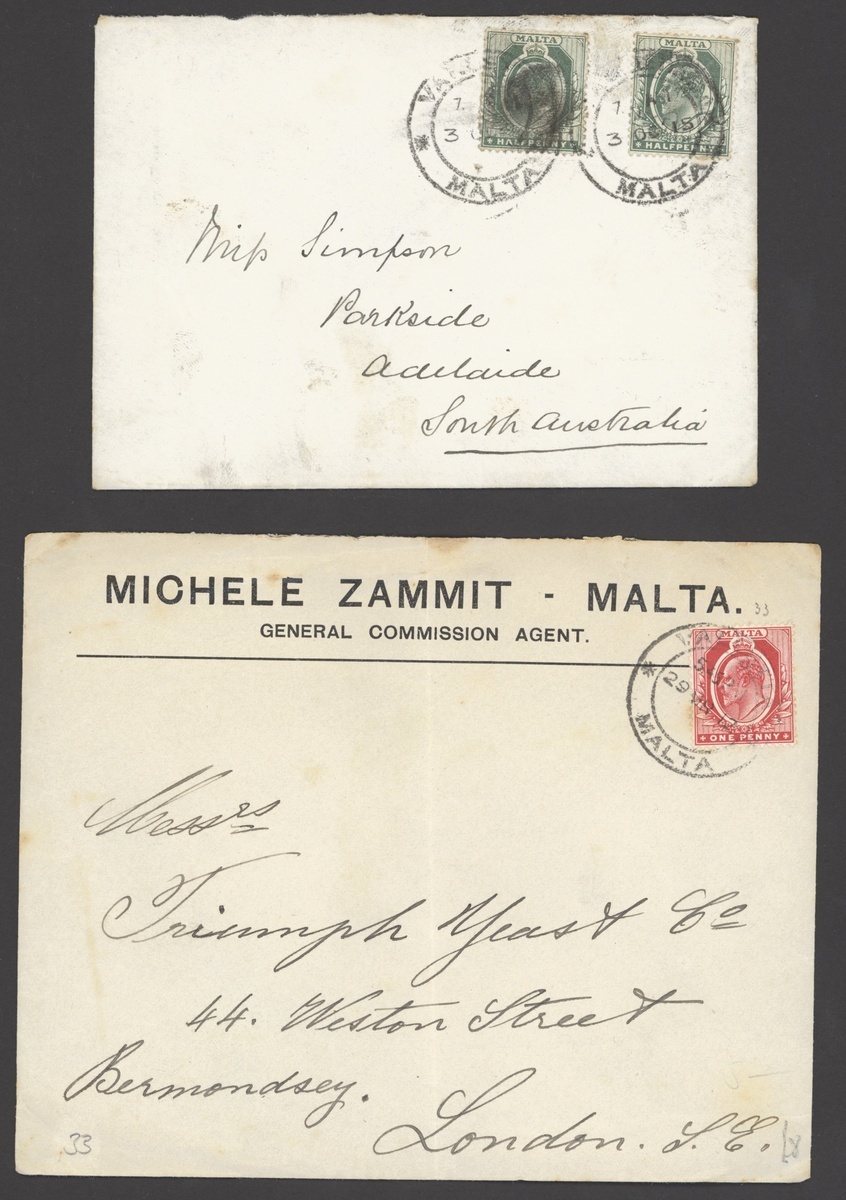 MALTA
HALFPENNY
MALTA
MALTA
HALFPENNY
MALTA
Miss Simpson
Parkside
Adelaide
South Australia
MICHELE ZAMMIT - MALTA.
33
GENERAL COMMISSION AGENT.
MALTA
ONE PENNY
MALTA
Messrs
Triumph Yeast Co
44. Weston Street
Bermondsey.
London. S.E.
33